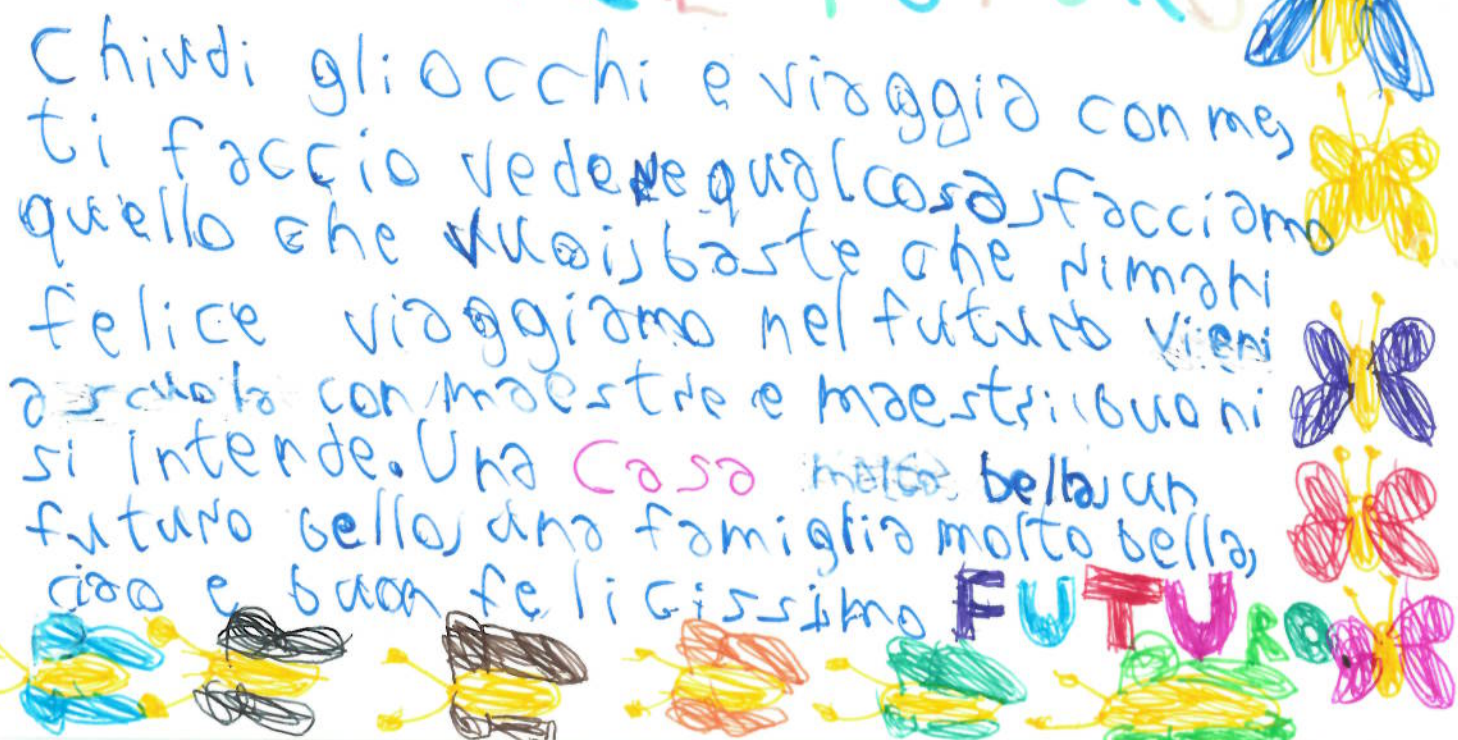 Chiudi gli occhi e viaggia con me,
ti faccio vedere qualcosa, facciamo
quello che vuoi, baste che rimani
felice viaggiamo nel futuro vieni
a scuola con maestre e maestri buoni
si intende. Una casa molto bella, un
futuro bello, una famiglia molto bella,
ciao e buon felicissimo FUTURO